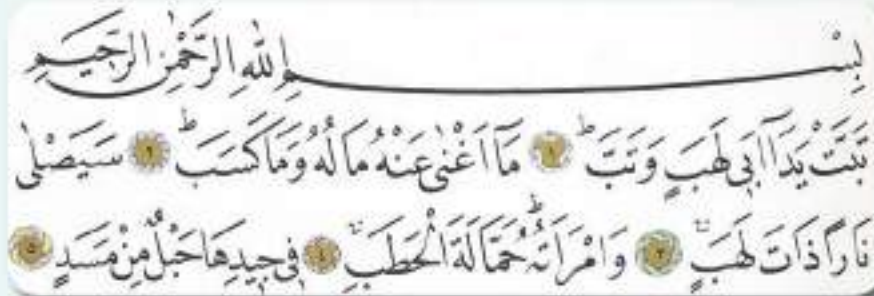 بِسْمِ اللّٰهِ الرَّحْمٰنِ الرَّحِيمِ
تَبَّتْ يَدَٓا اَبٖى لَهَبٍ وَتَبَّ ؕ ١ مَٓا اَغْنٰى عَنْهُ مَالُهُ وَمَا كَسَبَ ؕ ٢ سَيَصْلٰى
نَارًا ذَاتَ لَهَبٍ ٣ وَامْرَاَتُهُ ؕ حَمَّالَةَ الْحَطَبِ ٤ فٖى جٖيدِهَا حَبْلٌ مِنْ مَسَدٍ ٥